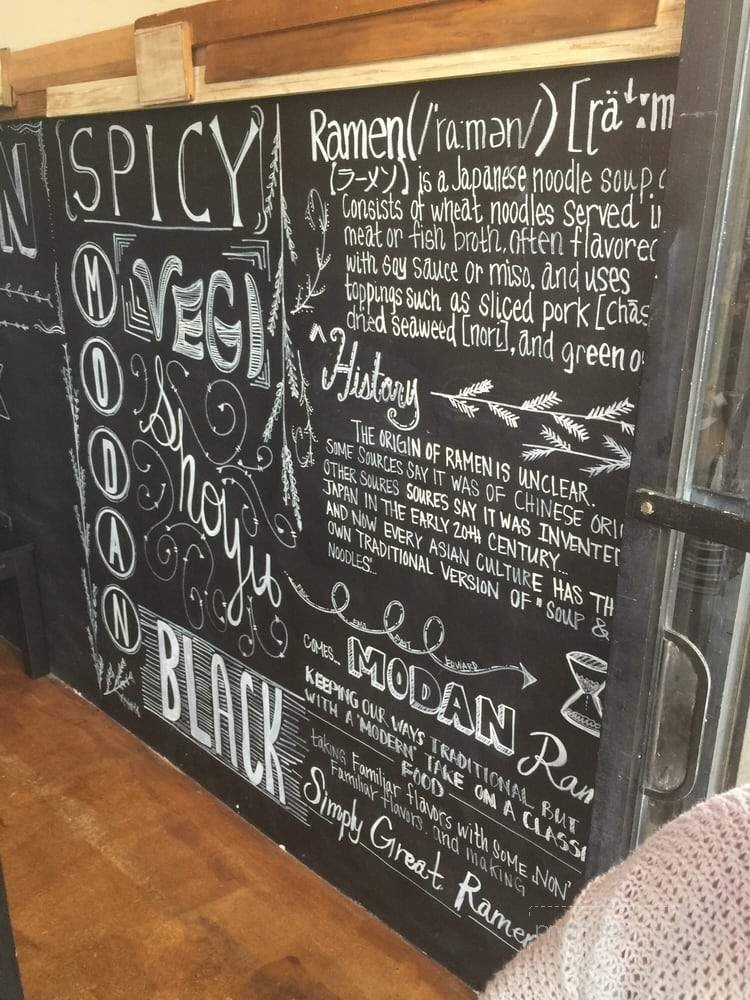 N
SPICY
MODAN
VEGI
Shoyu
BLACK
Ramen(/'ra:mən/) [rä↓:m
(ラーメン) is a Japanese noodle soup
Consists of wheat noodles served in
meat or fish broth, often flavored
with soy sauce or miso, and uses
toppings such as sliced pork [chas
dried seaweed [nori], and green o
History
THE ORIGIN OF RAMEN IS UNCLEAR.
SOME SOURCES SAY IT WAS OF CHINESE ORI
OTHER SOURES SOURES SAY IT WAS INVENTED
JAPAN IN THE EARLY 20TH CENTURY...
AND NOW EVERY ASIAN CULTURE HAS TH
OWN TRADITIONAL VERSION OF "SOUP &
NOODLES"..
FORWARD
COMES... MODAN Ram
KEEPING OUR WAYS TRADITIONAL, BUT
WITH A 'MODERN' TAKE ON A CLASSI
FOOD
taking Familiar flavors with some 'NON'
Familiar flavors, and making
Simply Great Ramen